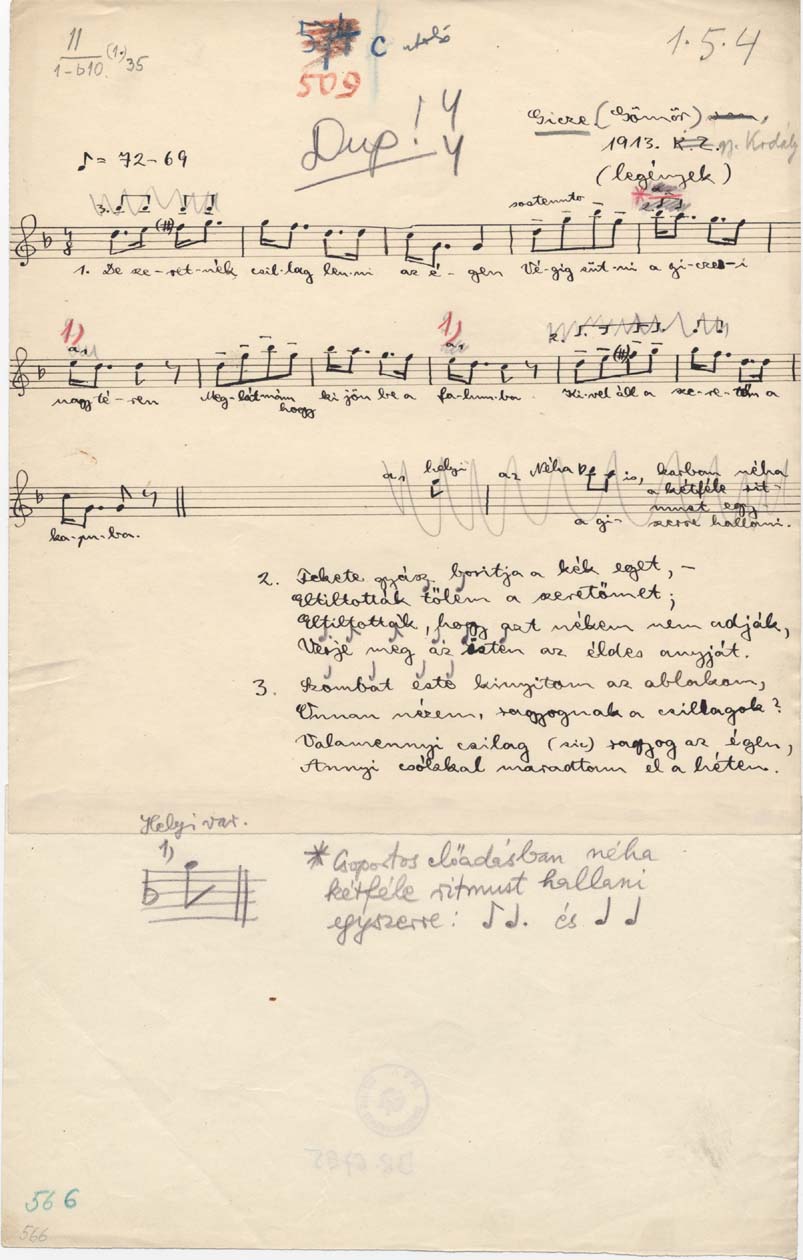 11
1-b10 (1.) 35
C utolsó
509
1.5.4
Dup! 4
4
Gicze (Gömör)
1913. K.Z. gy. Kodály
(legények)
♪= 72-69
3.
sostenuto
1. De sze-ret-nék csil-lag len-ni az é-gen Vé-gig süt-ni a gi-cze-i
1) a, 1) a, 2.
nagy té-ren Meg-lát-nám hogy ki jön be a fa-lum-ba Ki-vel áll a sze-re-tőm a
a, helyi az Néha is, karban néha
a kétféle rit-
must egy-
a gi- szerre hallani.
ka-pu-ba.
2. Fekete gyász borítja a kék eget, –
Eltiltották tőlem a szeretőmet;
Eltiltották, hogy azt nékem nem adják,
Verje meg az isten az éldes anyját.
3. Szombat este kinyitom az ablakom,
Onnan nézem, ragyognak a csillagok?
Valamennyi csilag (sic) ragyog az égen,
Annyi csólskal maradtam el a héten.
Helyi var.
1)
* Csoportos előadásban néha
kétféle ritmust hallani
egyszerre: ♪♩. és ♩ ♩
566
566